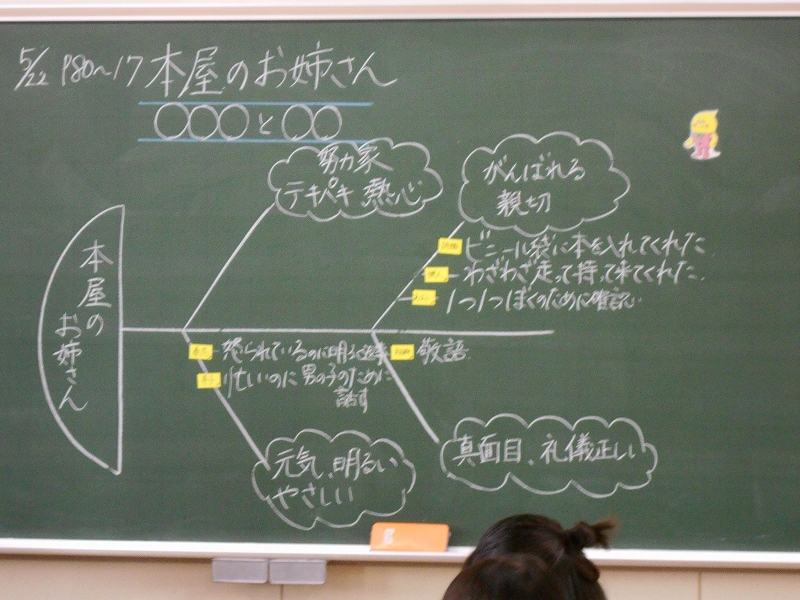 5/22 P80〜17 本屋のお姉さん
○○○と○○
努力家
テキパキ 熱心
がんばれる
親切
本屋の
お姉さん
ビニール袋に本を入れてくれた
わざわざ走って持って来てくれた。
1つ1つぼくのために確認
怒られているのに明るく
敬語
忙いのに男の子のために
話す
元気、明るい
やさしい
真面目、礼儀正しい